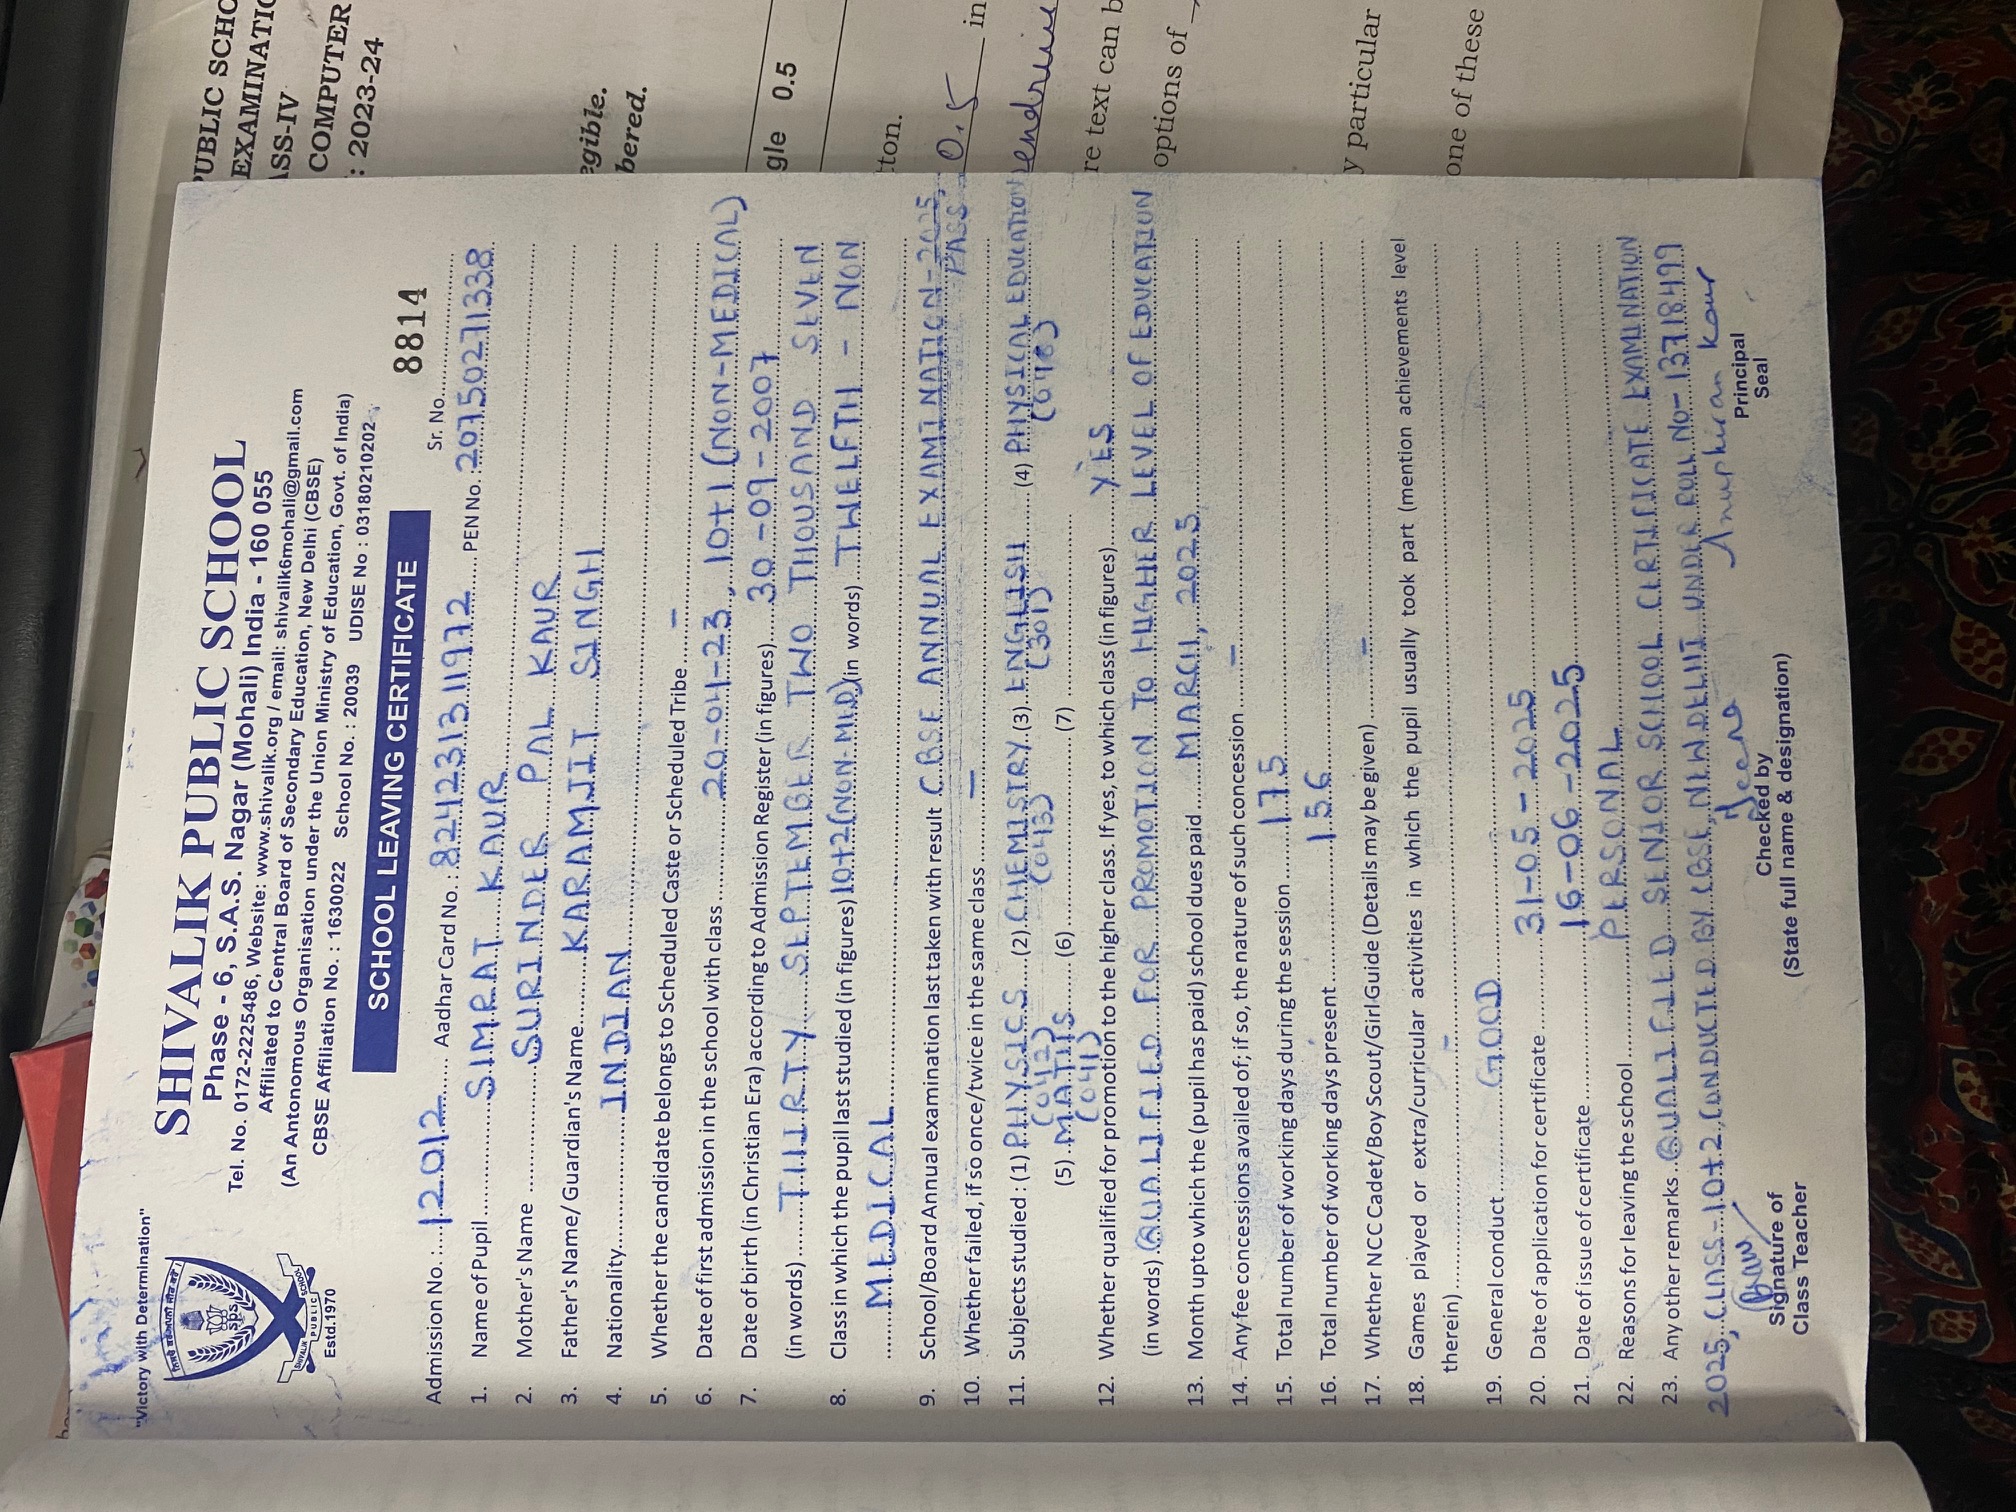 "Victory with Determination"
SHIVALIK PUBLIC SCHOOL
Phase - 6, S.A.S. Nagar (Mohali) India - 160 055
Tel. No. 0172-2225486, Website: www.shivallk.org / email: shivallk6mohali@gmail.com
Affiliated to Central Board of Secondary Education, New Delhi (CBSE)
(An Antonomous Organisation under the Union Ministry of Education, Govt. of India)
CBSE Affiliation No. : 1630022 School No. : 20039 UDISE No : 03180210202
SPS
SHIVALIK PUBLIC SCHOOL
Estd.1970
SCHOOL LEAVING CERTIFICATE
8814
Sr. No.
Admission No. : 12012 Aadhar Card No. : 824231311972 PEN No. 20750271338
1. Name of Pupil SIMRAT KAUR
2. Mother's Name SURINDER PAL KAUR
3. Father's Name/ Guardian's Name KARAMJIT SINGH
4. Nationality INDIAN
5. Whether the candidate belongs to Scheduled Caste or Scheduled Tribe –
6. Date of first admission in the school with class 20-04-23, 10+1 (NON-MEDICAL)
7. Date of birth (in Christian Era) according to Admission Register (in figures) 30-09-2007
(in words) THIRTY SEPTEMBER TWO THOUSAND SEVEN
8. Class in which the pupil last studied (in figures) 10+2(NON-MED)(in words) TWELFTH - NON
MEDICAL
9. School/Board Annual examination last taken with result CBSE ANNUAL EXAMINATION-2025, PASS
10. Whether failed, if so once/twice in the same class –
11. Subjects studied : (1) PHYSICS (042) (2) CHEMISTRY (043) (3) ENGLISH (301) (4) PHYSICAL EDUCATION (048)
(5) MATHS (041) (6) (7)
12. Whether qualified for promotion to the higher class. If yes, to which class (in figures) YES
(in words) QUALIFIED FOR PROMOTION TO HIGHER LEVEL OF EDUCATION
13. Month upto which the (pupil has paid) school dues paid MARCH, 2025
14. Any fee concessions availed of; if so, the nature of such concession –
15. Total number of working days during the session 175
16. Total number of working days present 156
17. Whether NCC Cadet/Boy Scout/Girl Guide (Details may be given) –
18. Games played or extra/curricular activities in which the pupil usually took part (mention achievements level
therein) –
19. General conduct GOOD
20. Date of application for certificate 31-05-2025
21. Date of issue of certificate 16-06-2025
22. Reasons for leaving the school PERSONAL
23. Any other remarks QUALIFIED SENIOR SCHOOL CERTIFICATE EXAMINATION
2025, CLASS-10+2 CONDUCTED BY CBSE, NEW DELHI UNDER ROLL NO-13718499
Signature of
Class Teacher
Checked by
(State full name & designation)
Anuphiran Kaur
Principal
Seal
PUBLIC SCHO
EXAMINATIO
ASS-IV
COMPUTER
: 2023-24
egible.
bered.
gle 0.5
tton.
0.5 in
re text can b
options of
y particular
one of these